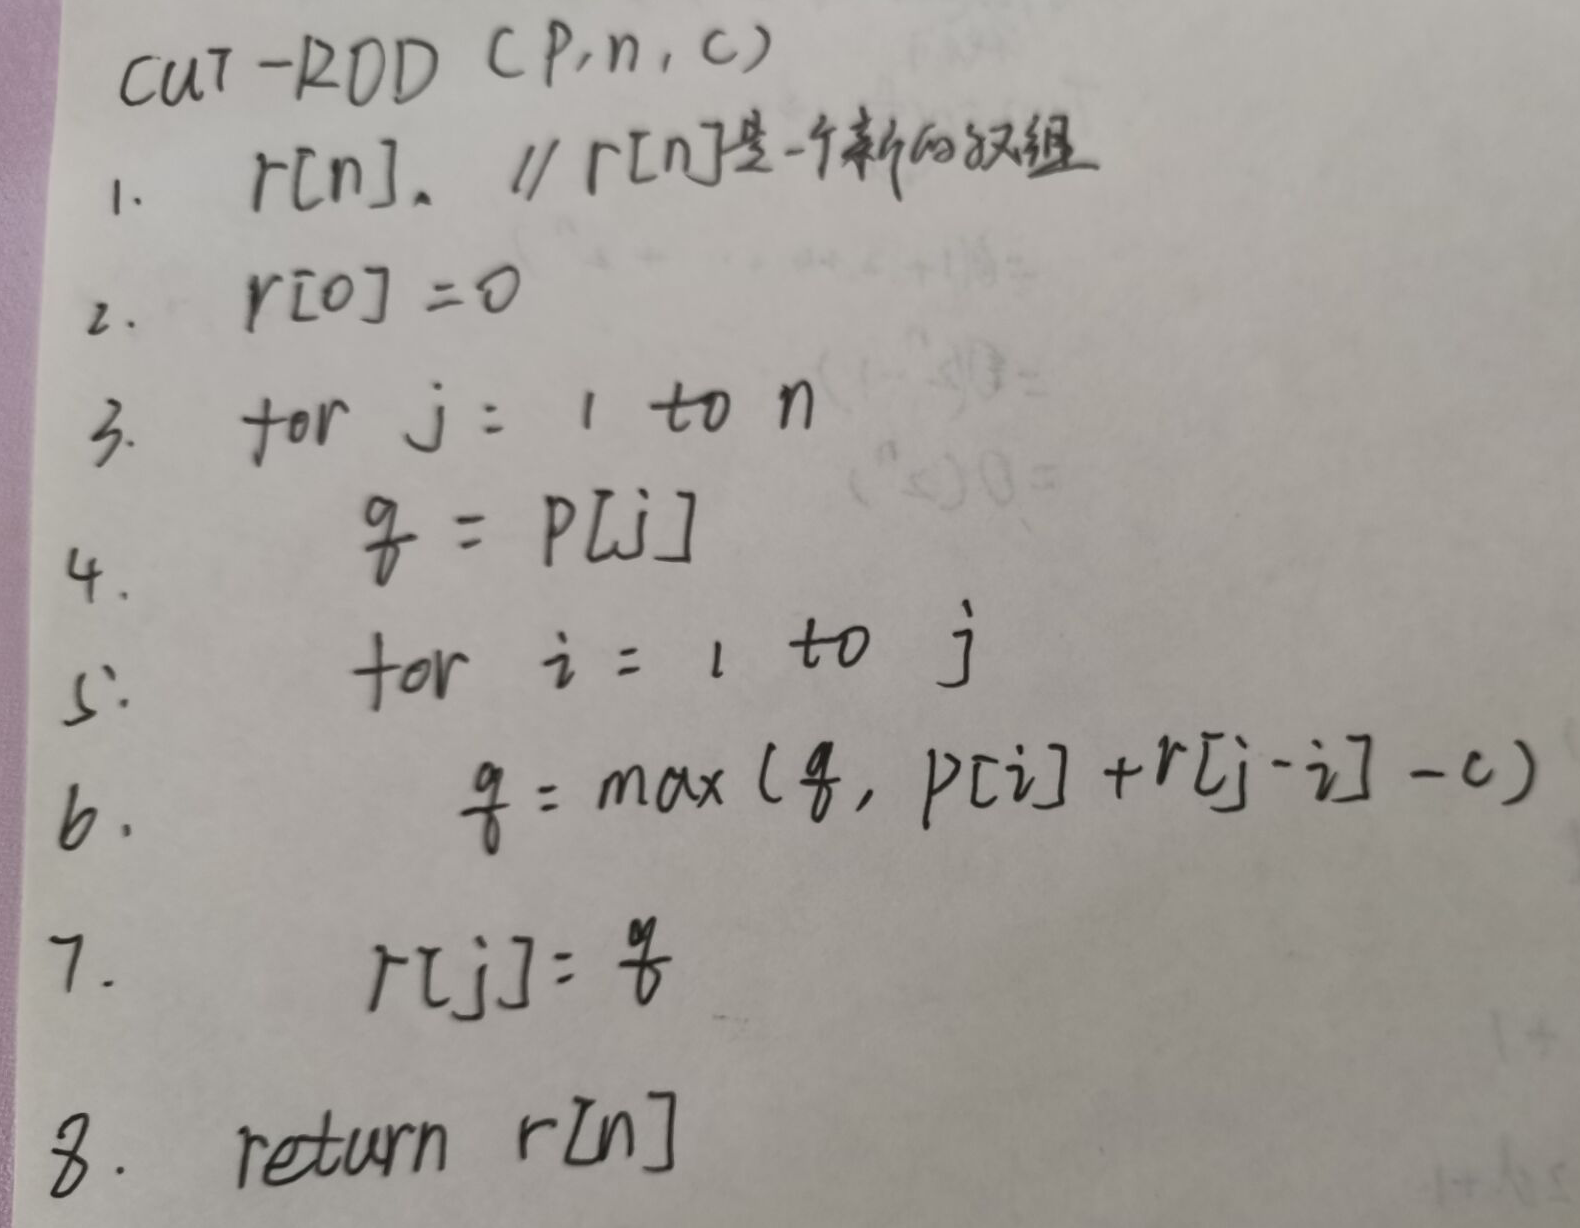 CUT-ROD (P, n, c)
1. r[n]. // r[n]是一个新的数组
2. r[0] = 0
3. for j = 1 to n
4. q = P[j]
5. for i = 1 to j
6. q = max (q, p[i] + r[j-i] - c)
7. r[j] = q
8. return r[n]